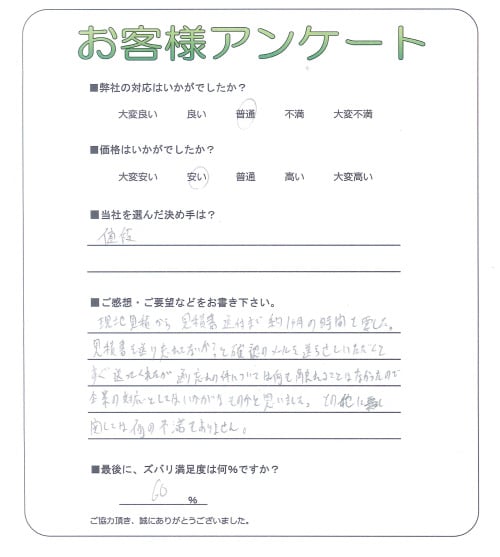 お客様アンケート
■弊社の対応はいかがでしたか？
大変良い 良い 普通 不満 大変不満
■価格はいかがでしたか？
大変安い 安い 普通 高い 大変高い
■当社を選んだ決め手は？
値段
■ご感想・ご要望などをお書き下さい。
現地見積から 見積書送付まで 約1ヶ月の時間を要した。
見積書を送り忘れてないか？と確認のメールを送らせていただくと
すぐ送ってくれたが 対応の件については何も触れることはなかったので
企業の対応としてはいかがなものかと思いました。その他に
関しては何の不満もありません。
■最後に、ズバリ満足度は何%ですか？
60 %
ご協力頂き、誠にありがとうございました。